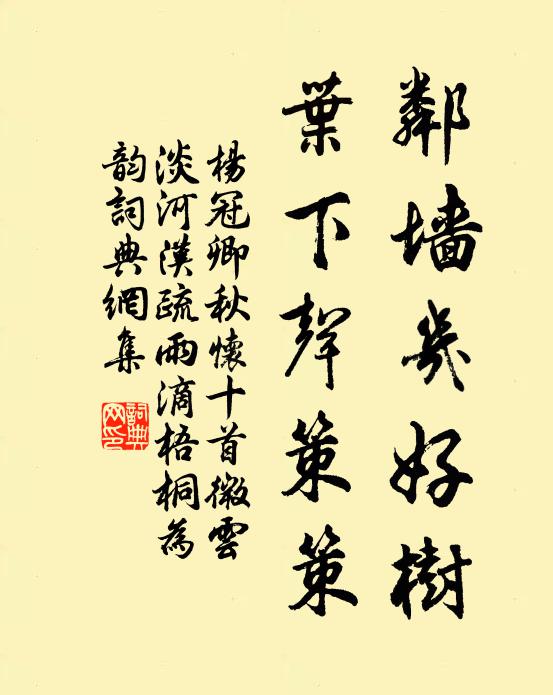 鄰墙幾好樹
葉下聲策策
楊冠卿秋懷十首微雲
淡河漢疏雨滴梧桐為
韵詞典網集
詞典
网印